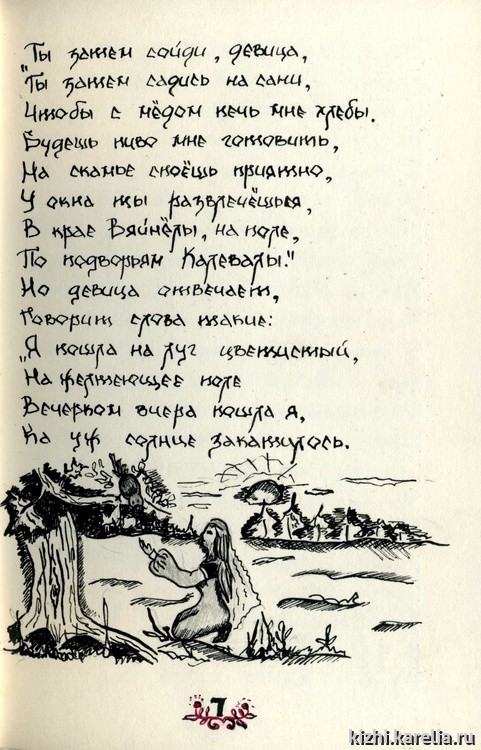 „Ты затем сойди, девица,
Ты затем садись на сани,
Чтобы с мёдом печь мне хлебы.
Будешь пиво мне готовить,
На скамье споёшь приятно,
У окна ты развлечёшься,
В крае Вяйнёлы, на поле,
По подворьям Калевалы."
Но девица отвечает,
Говорит слова такие:
„Я пошла на луг цветистый,
На желтеющее поле
Вечерком вчера пошла я,
Как уж солнце закатилось.
7
kizhi.karelia.ru